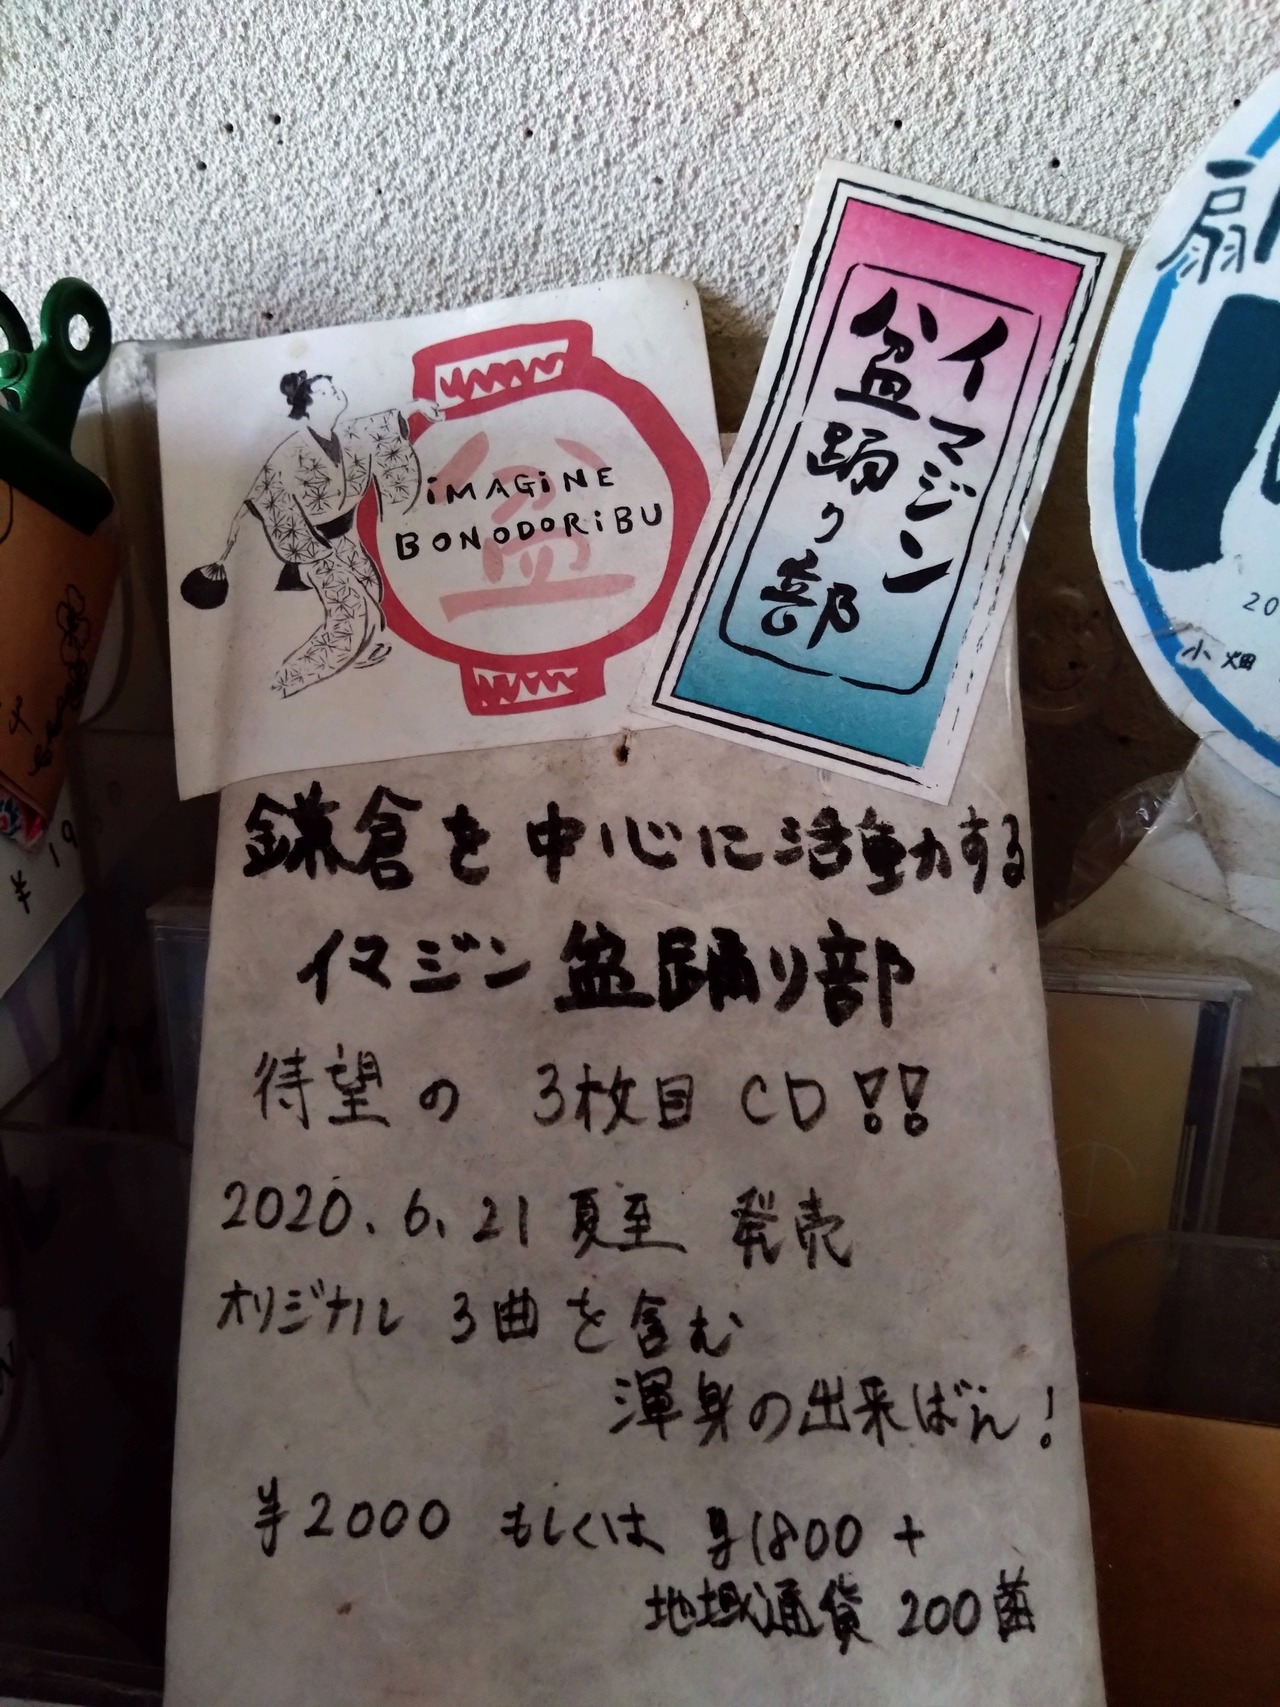 盆
iMAGiNE
BONODORiBU
イマジン
盆踊り部
扇
20
小畑
¥19
鎌倉を中心に活動する
イマジン盆踊り部
待望の 3枚目 CD!!
2020.6.21 夏至 発売
オリジナル 3曲を含む
渾身の出来ばえ!
¥2000 もしくは ¥1800 +
地域通貨 200菌